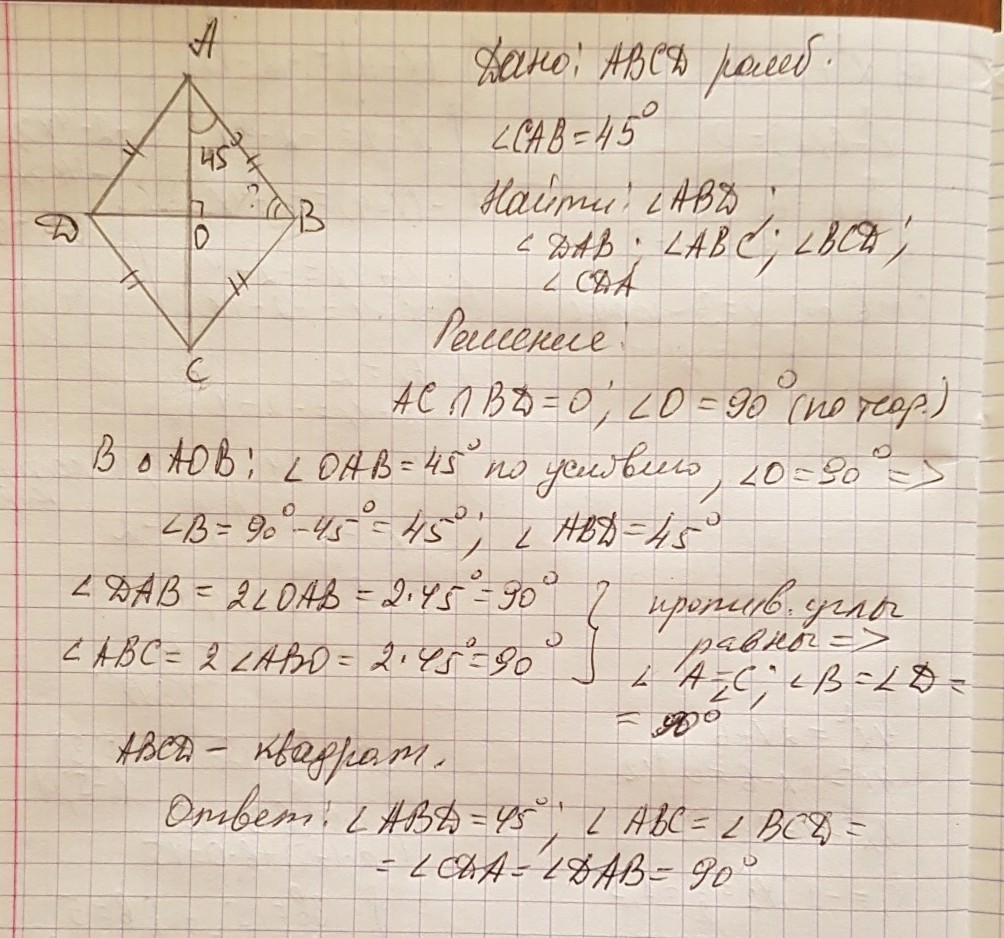 A
45°
?
D
O
B
C
Дано: ABCD ромб.
∠CAB = 45°
Найти: ∠ABD;
∠DAB; ∠ABC; ∠BCD;
∠CDA
Решение:
AC ∩ BD = O; ∠O = 90° (по теор.)
В △ AOB: ∠OAB = 45° по условию, ∠O = 90° =>
∠B = 90° - 45° = 45°; ∠ABD = 45°
∠DAB = 2∠OAB = 2·45° = 90°
∠ABC = 2∠ABO = 2·45° = 90°
против. углы
равны =>
∠A = ∠C; ∠B = ∠D =
= 90°
ABCD – квадрат.
Ответ: ∠ABD = 45°; ∠ABC = ∠BCD =
= ∠CDA = ∠DAB = 90°